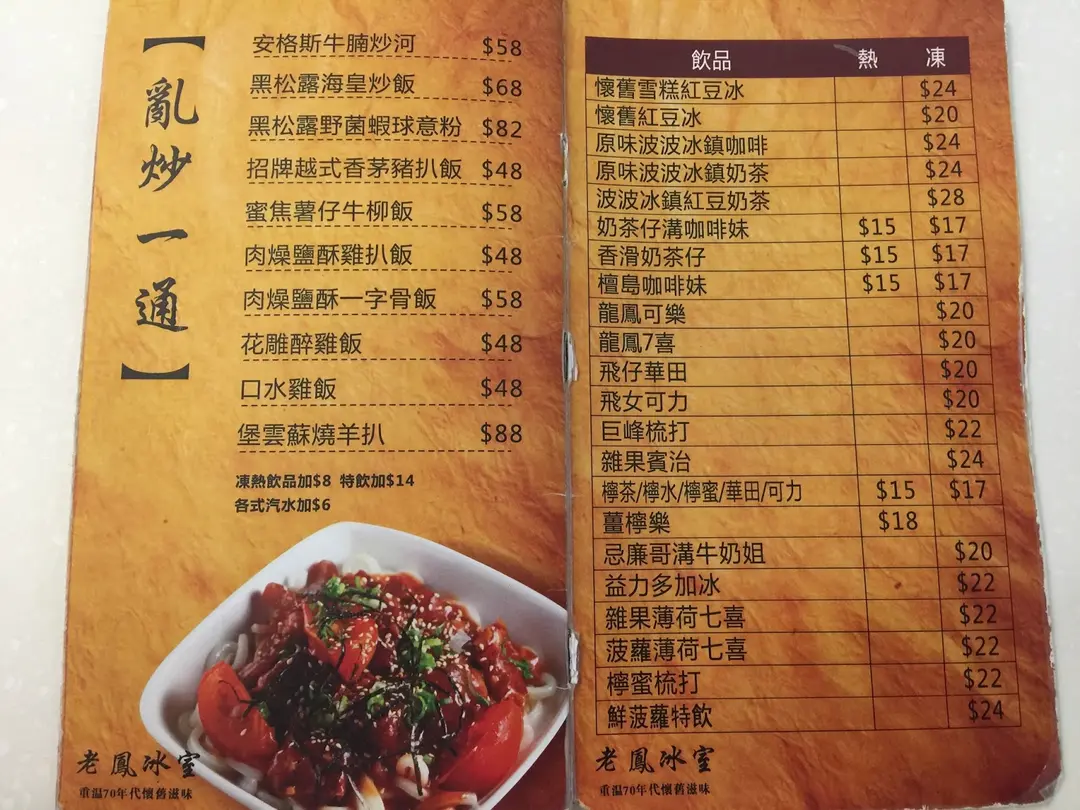 【亂炒一通】
安格斯牛腩炒河 $58
黑松露海皇炒飯 $68
黑松露野菌蝦球意粉 $82
招牌越式香茅豬扒飯 $48
蜜焦薯仔牛柳飯 $58
肉燥鹽酥雞扒飯 $48
肉燥鹽酥一字骨飯 $58
花雕醉雞飯 $48
口水雞飯 $48
堡雲蘇燒羊扒 $88
凍熱飲品加$8 特飲加$14
各式汽水加$6
老鳳冰室
重温70年代懷舊滋味
飲品 熱 凍
懷舊雪糕紅豆冰 $24
懷舊紅豆冰 $20
原味波波冰鎮咖啡 $24
原味波波冰鎮奶茶 $24
波波冰鎮紅豆奶茶 $28
奶茶仔溝咖啡妹 $15 $17
香滑奶茶仔 $15 $17
檀島咖啡妹 $15 $17
龍鳳可樂 $20
龍鳳7喜 $20
飛仔華田 $20
飛女可力 $20
巨峰梳打 $22
雜果賓治 $24
檸茶/檸水/檸蜜/華田/可力 $15 $17
薑檸樂 $18
忌廉哥溝牛奶姐 $20
益力多加冰 $22
雜果薄荷七喜 $22
菠蘿薄荷七喜 $22
檸蜜梳打 $22
鮮菠蘿特飲 $24
老鳳冰室
重温70年代懷舊滋味